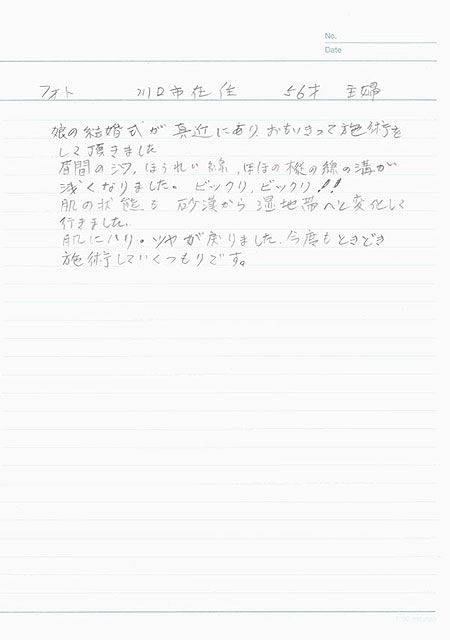 No.
Date
フォト 川口市在住 56才 主婦
娘の結婚式が真近にあり、おもいきって施術を
して頂きました
眉間のシワ、ほうれい線、ほほの横の線の溝が
浅くなりました。ビックリ、ビックリ!!
肌の状態も 砂漠から湿地帯へと変化して
行きました.
肌にハリ・ツヤが戻りました.今度もときどき
施術していくつもりです。